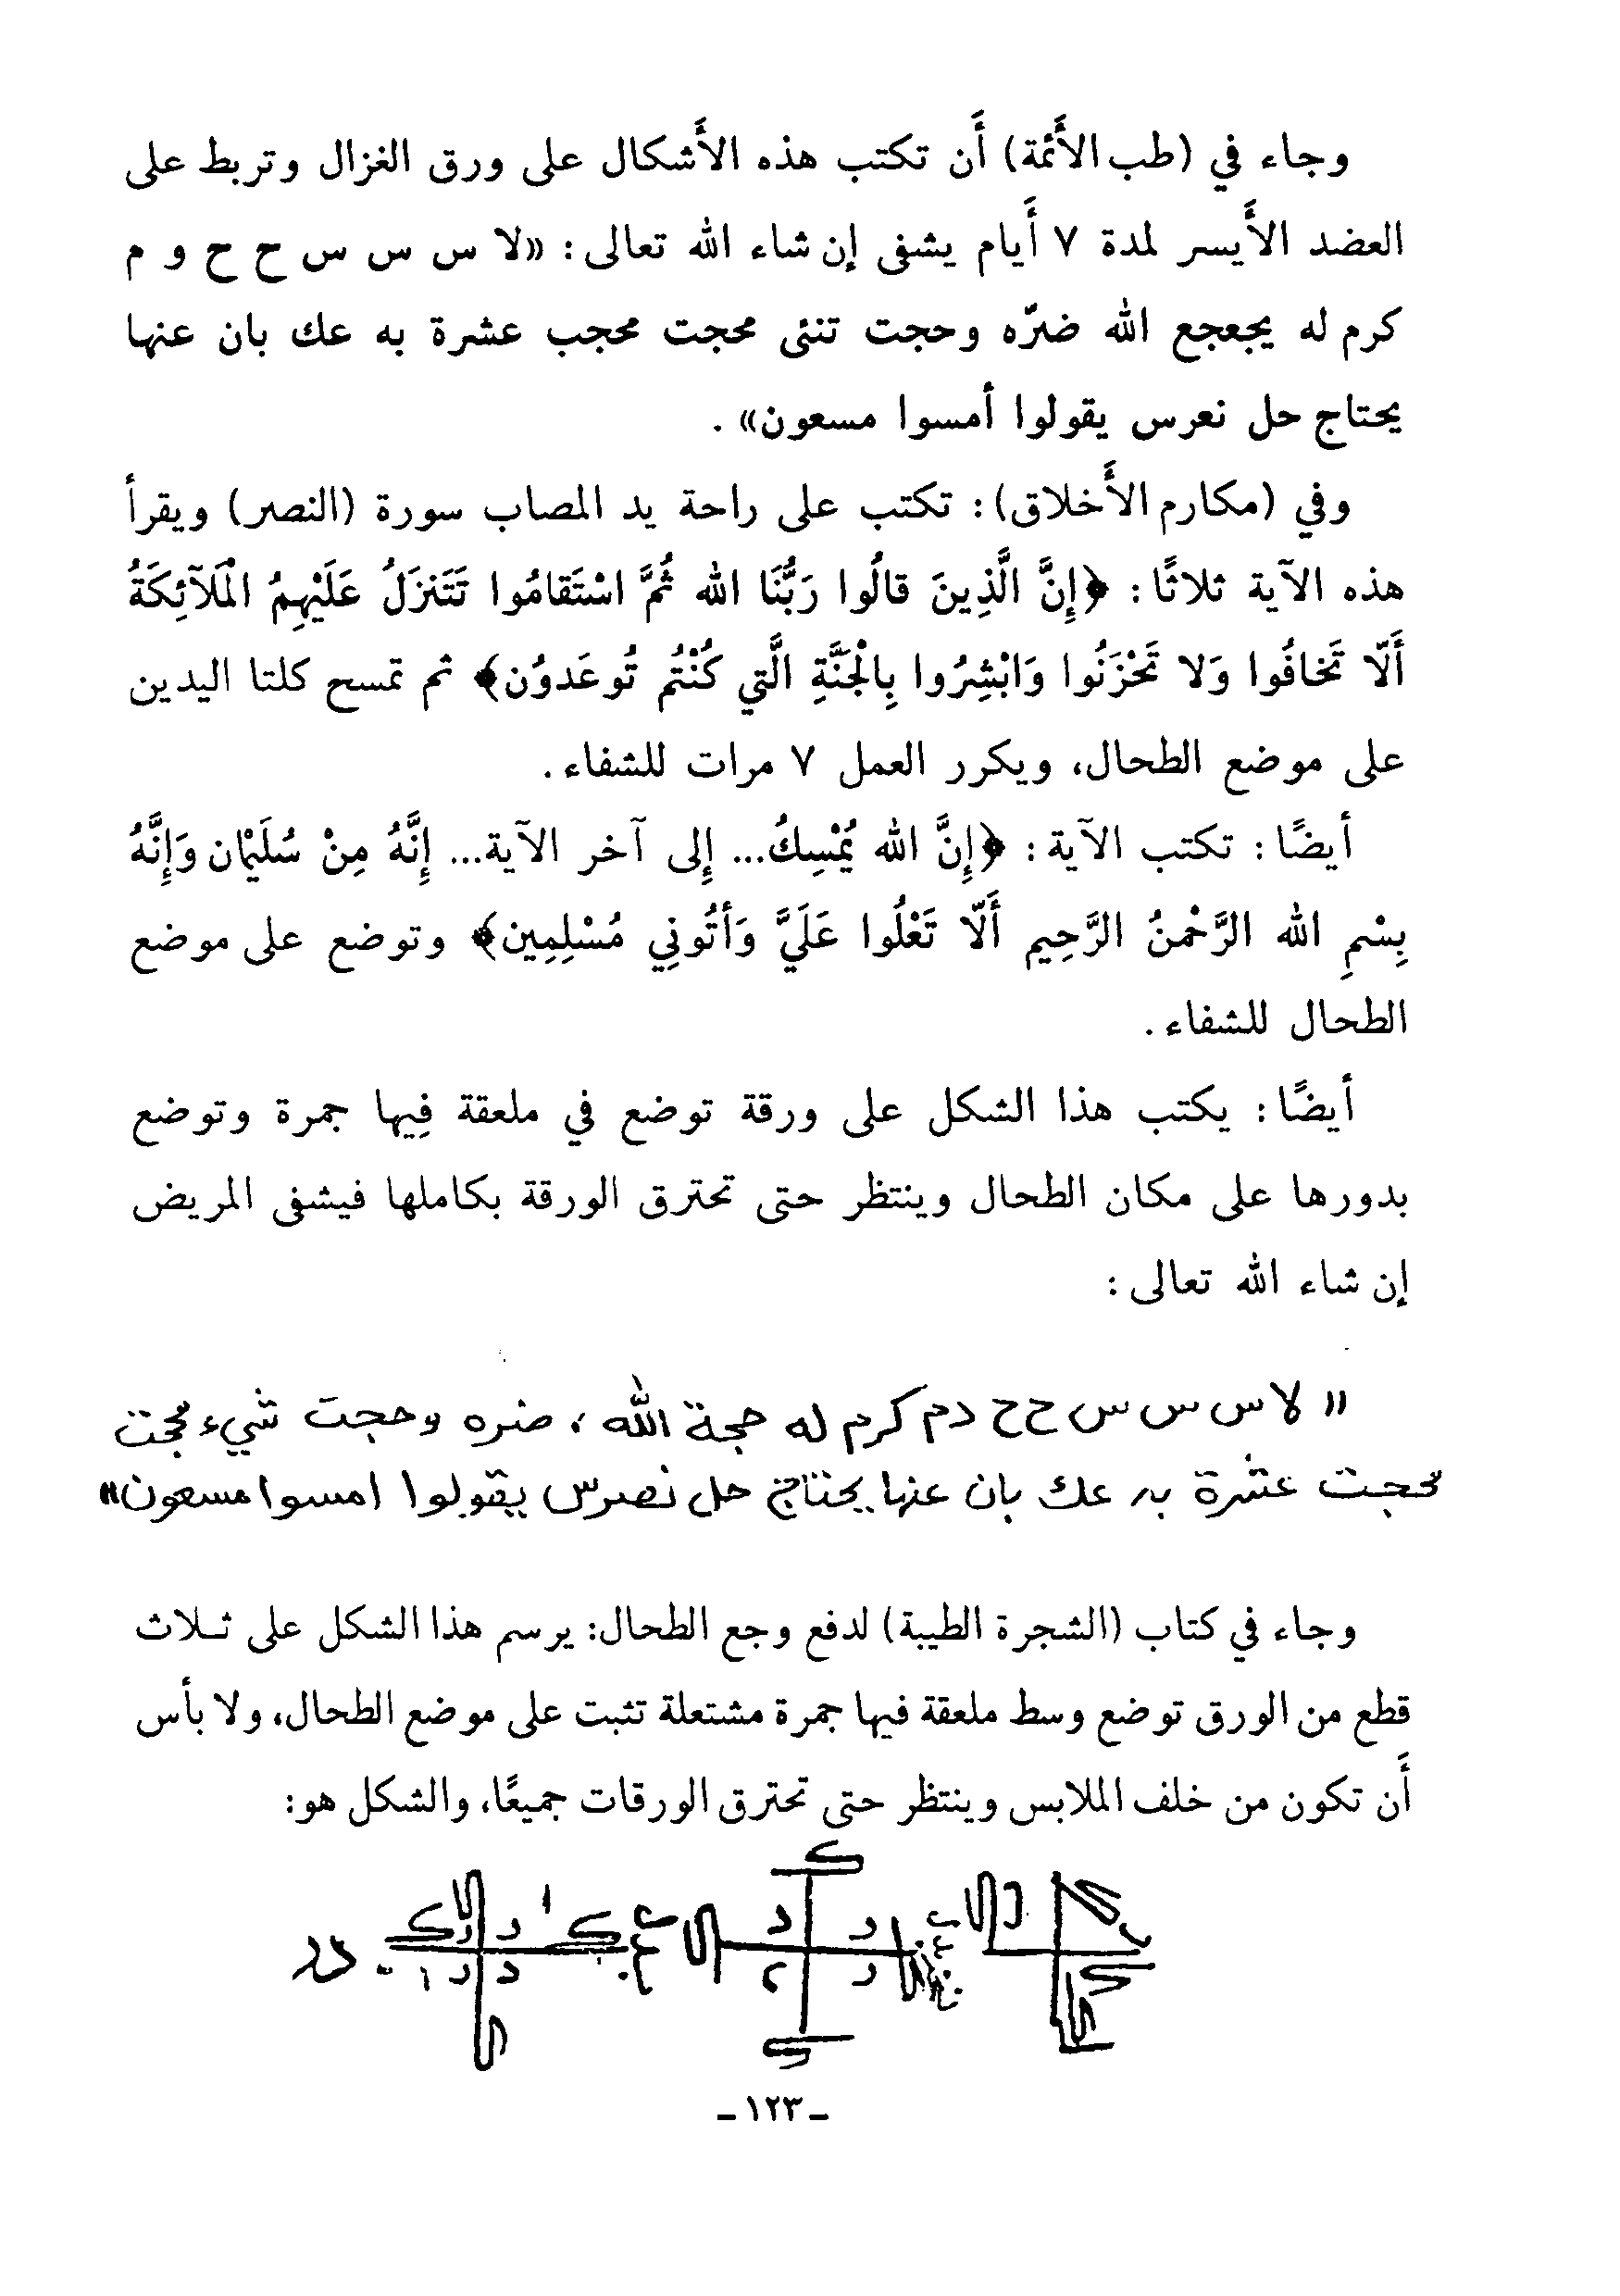 وجاء في (طب الأَئمة) أَن تكتب هذه الأَشكال على ورق الغزال وتربط على
العضد الأَيسر لمدة ٧ أَيام يشفى إن شاء الله تعالى: «لا س س س ح ح و م
كرم له يجعجع الله ضرّه وحجت تنئى محجت محجب عشرة به عك بان عنها
يحتاج حل نعرس يقولوا أمسوا مسعون».
وفي (مكارم الأَخلاق): تكتب على راحة يد المصاب سورة (النصر) ويقرأ
هذه الآية ثلاثًا: ﴿إِنَّ الَّذِينَ قالُوا رَبُّنَا الله ثُمَّ اسْتَقامُوا تَتَنزَلُ عَلَيْهِمُ الْمَلآئِكَةُ
أَلّا تَخافُوا وَلا تَحْزَنُوا وَابْشِرُوا بِالْجَنَّةِ الَّتي كُنْتُم تُوعَدوُن﴾ ثم تمسح كلتا اليدين
على موضع الطحال، ويكرر العمل ٧ مرات للشفاء.
أيضًا: تكتب الآية: ﴿إِنَّ الله يُمْسِكُ... إِلى آخر الآية... إِنَّهُ مِنْ سُلَيْمان وَإِنَّهُ
بِسْمِ الله الرَّحْمنُ الرَّحِيم أَلّا تَعْلُوا عَلَيَّ وَأتُونِي مُسْلِمِين﴾ وتوضع على موضع
الطحال للشفاء.
أيضًا: يكتب هذا الشكل على ورقة توضع في ملعقة فِيها جمرة وتوضع
بدورها على مكان الطحال وينتظر حتى تحترق الورقة بكاملها فيشفى المريض
إن شاء الله تعالى:
" لا س س س ح ح د م كرم له حجة الله ، ضره وحجت شيء محجت
محجت عشرة به عك بان عنها يحتاج حل نصرس يقولوا امسوا مسعون"
وجاء في كتاب (الشجرة الطيبة) لدفع وجع الطحال: يرسم هذا الشكل على ثـلاث
قطع من الورق توضع وسط ملعقة فيها جمرة مشتعلة تثبت على موضع الطحال، ولا بأس
أَن تكون من خلف الملابس وينتظر حتى تحترق الورقات جميعًا، والشكل هو:
ـ ١٢٣ ـ